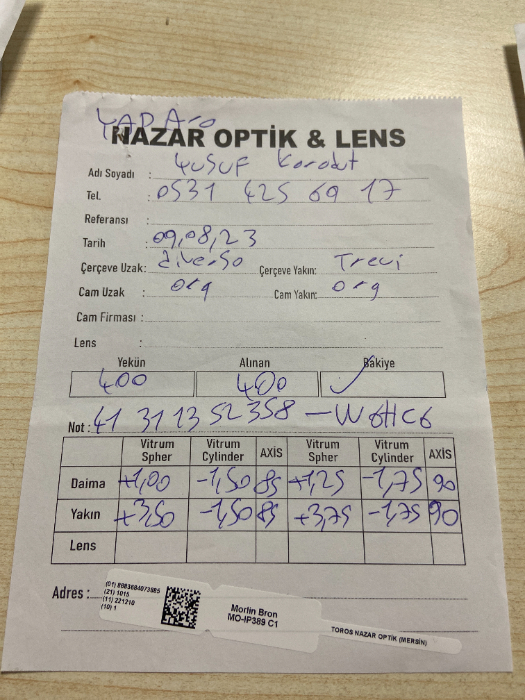 YAPA
NAZAR OPTİK & LENS
Adı Soyadı : Yusuf Karabat
Tel. : 0531 425 69 17
Referansı :
Tarih : 09,08,23
Çerçeve Uzak: diverso Çerçeve Yakın: Trevi
Cam Uzak : org Cam Yakın: org
Cam Firması :
Lens :
Yekün Alınan Bakiye
400 400 ✓
Not : 41 311352358 - W6HC6
Vitrum Spher Vitrum Cylinder AXİS Vitrum Spher Vitrum Cylinder AXİS
Daima +1,00 -1,50 85 +1,25 -1,75 90
Yakın +3,50 -1,50 85 +3,75 -1,75 90
Lens
Adres :
(21) 1015
(11) 221210
(10) 1
Morlin Bron
MO-IP389 C1
TOROS NAZAR OPTİK (MERSİN)